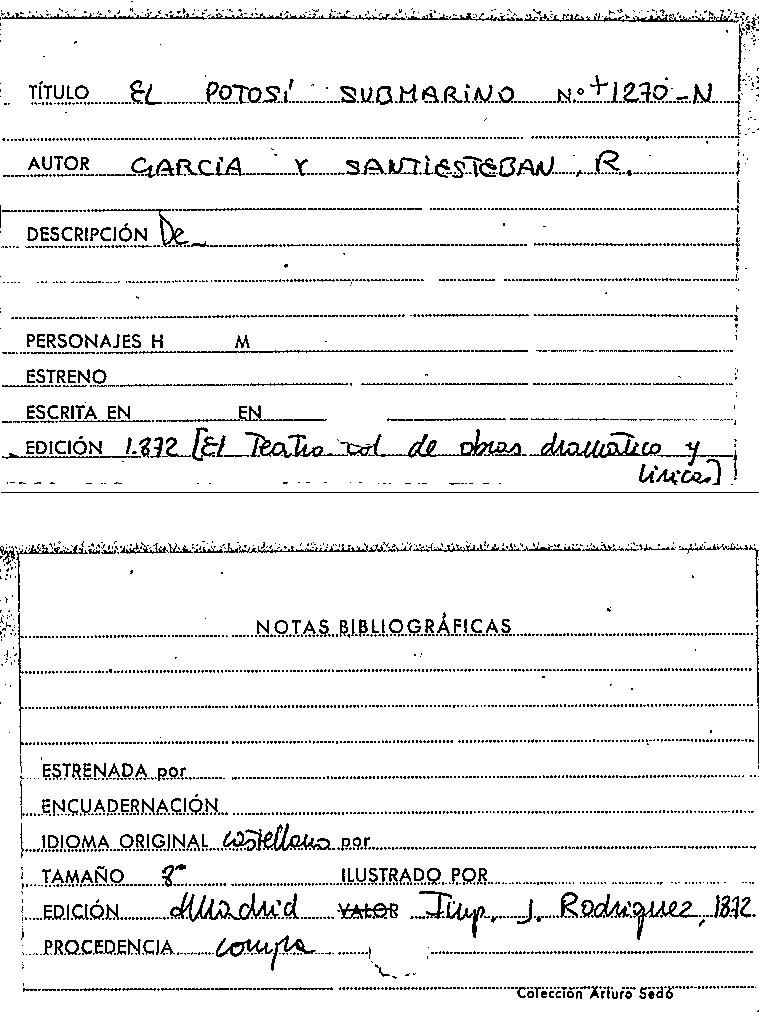 TÍTULO EL POTOSÍ SUBMARINO N.º +1270-N
AUTOR GARCÍA Y SANTIESTEBAN, R.
DESCRIPCIÓN De
PERSONAJES H M
ESTRENO
ESCRITA EN EN
EDICIÓN 1.872 [El Teatro col de obras dramatico y
liricas]
NOTAS BIBLIOGRÁFICAS
ESTRENADA por
ENCUADERNACIÓN
IDIOMA ORIGINAL castellano por
TAMAÑO 8º ILUSTRADO POR
EDICIÓN Madrid VALOR Imp. J. Rodriguez, 1872
PROCEDENCIA compra
Colección Arturo Sedó